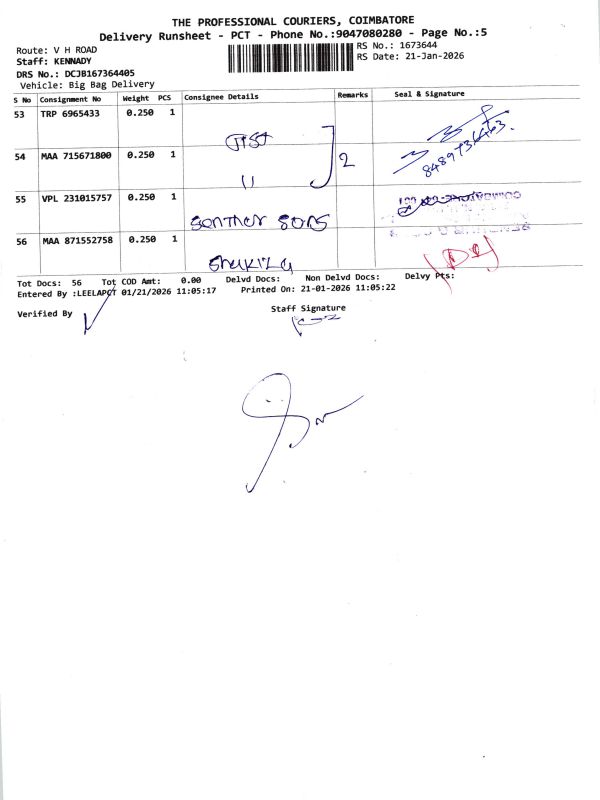 THE PROFESSIONAL COURIERS, COIMBATORE
Delivery Runsheet - PCT - Phone No.:9047080280 - Page No.:5
Route: V H ROAD
RS No.: 1673644
Staff: KENNADY
RS Date: 21-Jan-2026
DRS No.: DCJB167364405
Vehicle: Big Bag Delivery
S No Consignment No Weight PCS Consignee Details Remarks Seal & Signature
53 TRP 6965433 0.250 1
54 MAA 715671800 0.250 1 2
55 VPL 231015757 0.250 1
56 MAA 871552758 0.250 1 Shakila
Tot Docs: 56 Tot COD Amt: 0.00 Delvd Docs: Non Delvd Docs: Delvy Pts:
Entered By :LEELAPCT 01/21/2026 11:05:17 Printed On: 21-01-2026 11:05:22
Verified By
Staff Signature